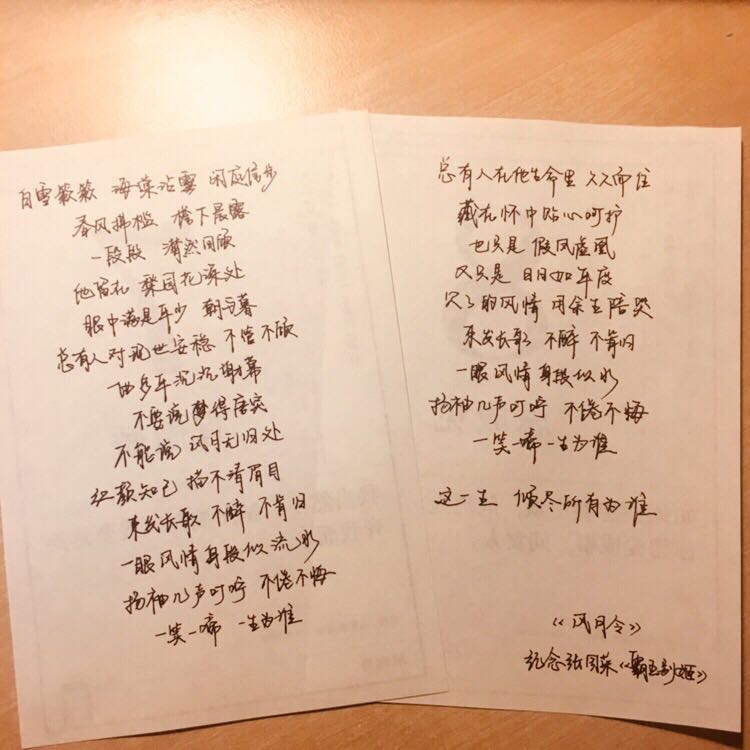 白雪簌簌 海棠沾露 闲庭信步
春风拂槛 檐下晨露
一段段 潸然回顾
他留在 梨园花深处
眼中满是年少 朝与暮
总有人对现世安稳 不信不顾
一曲多年沉沉谢幕
不要说 梦得唐突
不能说 风月无归处
红颜知己 描不清眉目
来我长歌 不醉 不肯归
一眼风情身段似流水
扬袖几声叮咛 不倦不悔
一笑一啼 一生为谁
总有人在他生命里 久久而住
藏在怀中贴心呵护
也只是 假凤虚凰
又只是 日日如年度
欠了的风情 用余生陪哭
来我长歌 不醉 不肯归
一眼风情身段似水
扬袖几声叮咛 不倦不悔
一笑一啼 一生为谁
这一生 倾尽所有为谁
《风月令》
纪念张国荣《霸王别姬》